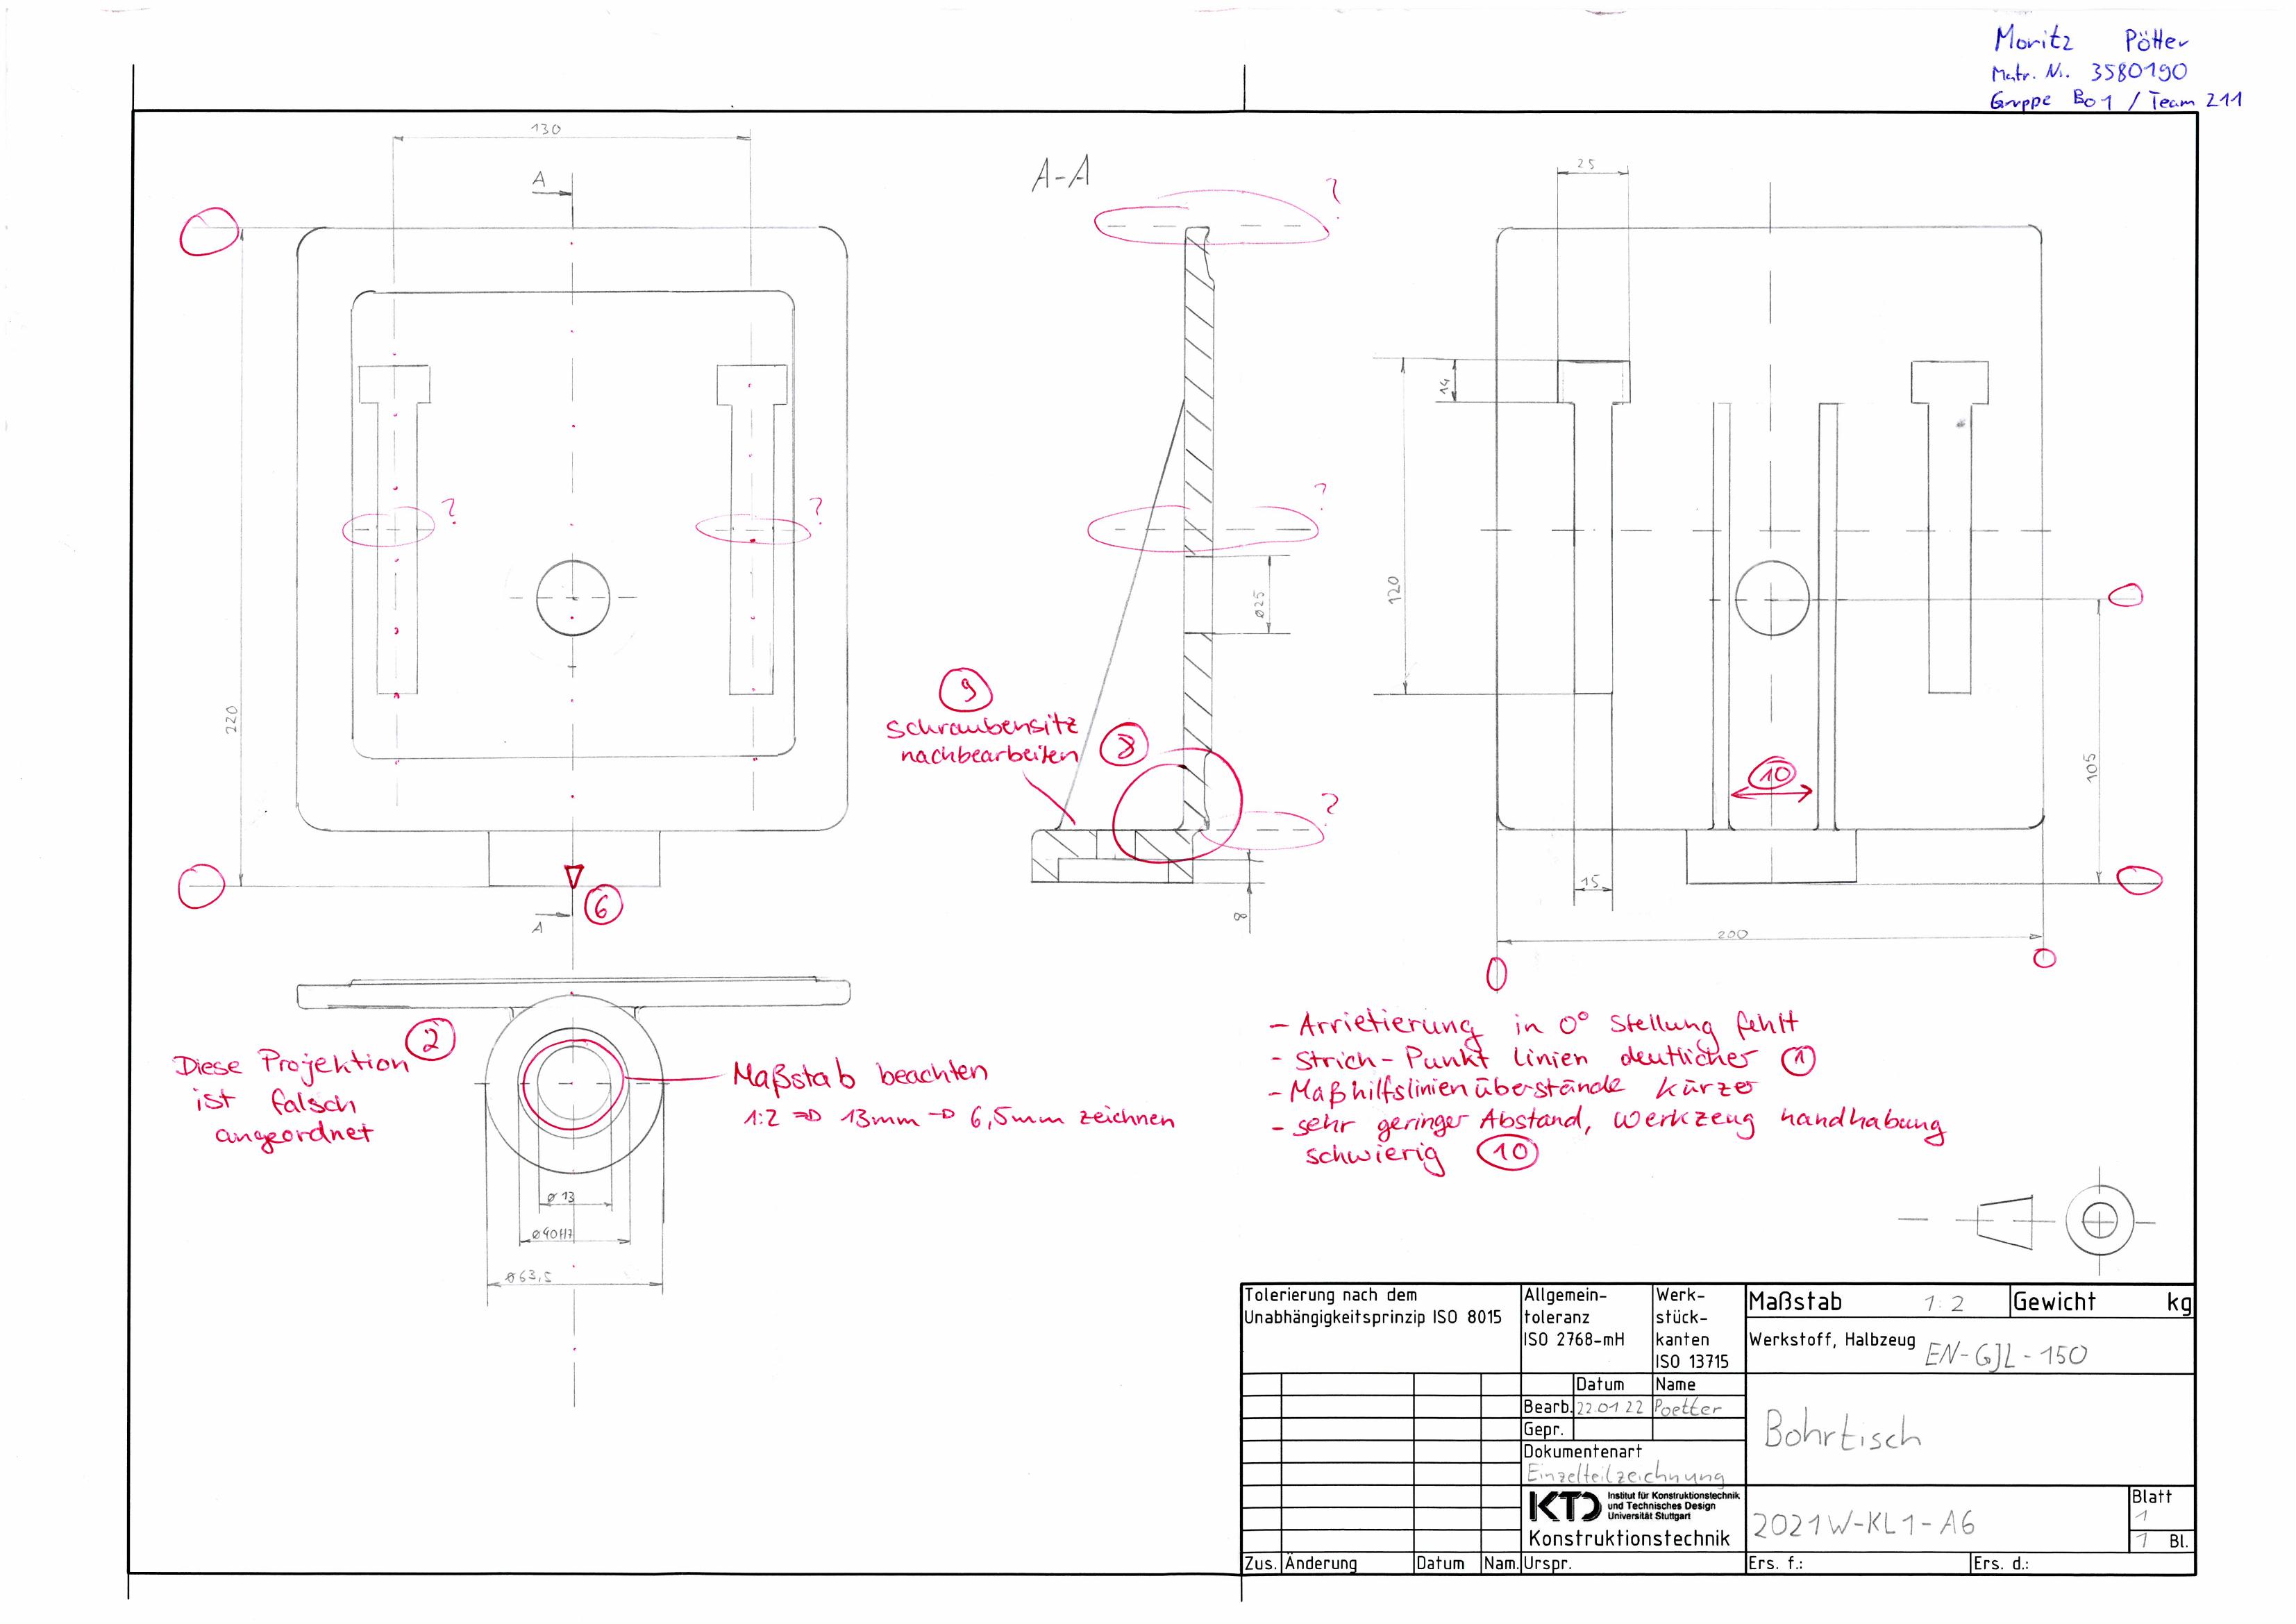 Moritz Pötter
Matr. Nr. 3580190
Gruppe B01 / Team 211
130
A
A-A
?
25
14
?
?
?
120
Ø25
220
9
Schraubensitz
nachbearbeiten
8
?
10
105
6
A
8
15
200
2
Diese Projektion
ist falsch
angeordnet
Maßstab beachten
1:2 => 13mm -> 6,5mm zeichnen
- Arrietierung in 0° Stellung fehlt
- Strich-Punkt linien deutlicher 1
- Maßhilfslinienüberstände kürzer
- sehr geringer Abstand, Werkzeug handhabung
schwierig 10
Ø 13
Ø40H7
Ø63,5
Tolerierung nach dem
Unabhängigkeitsprinzip ISO 8015
Allgemein-
toleranz
ISO 2768-mH
Werk-
stück-
kanten
ISO 13715
Maßstab 1:2
Gewicht kg
Werkstoff, Halbzeug EN-GJL-150
Datum Name
Bearb. 22.01.22 Poetter
Gepr.
Dokumentenart
Einzelteilzeichnung
Bohrtisch
KTD Institut für Konstruktionstechnik
und Technisches Design
Universität Stuttgart
Konstruktionstechnik
2021W-KL1-A6
Blatt
1
1 Bl.
Zus. Änderung Datum Nam. Urspr. Ers. f.: Ers. d.: